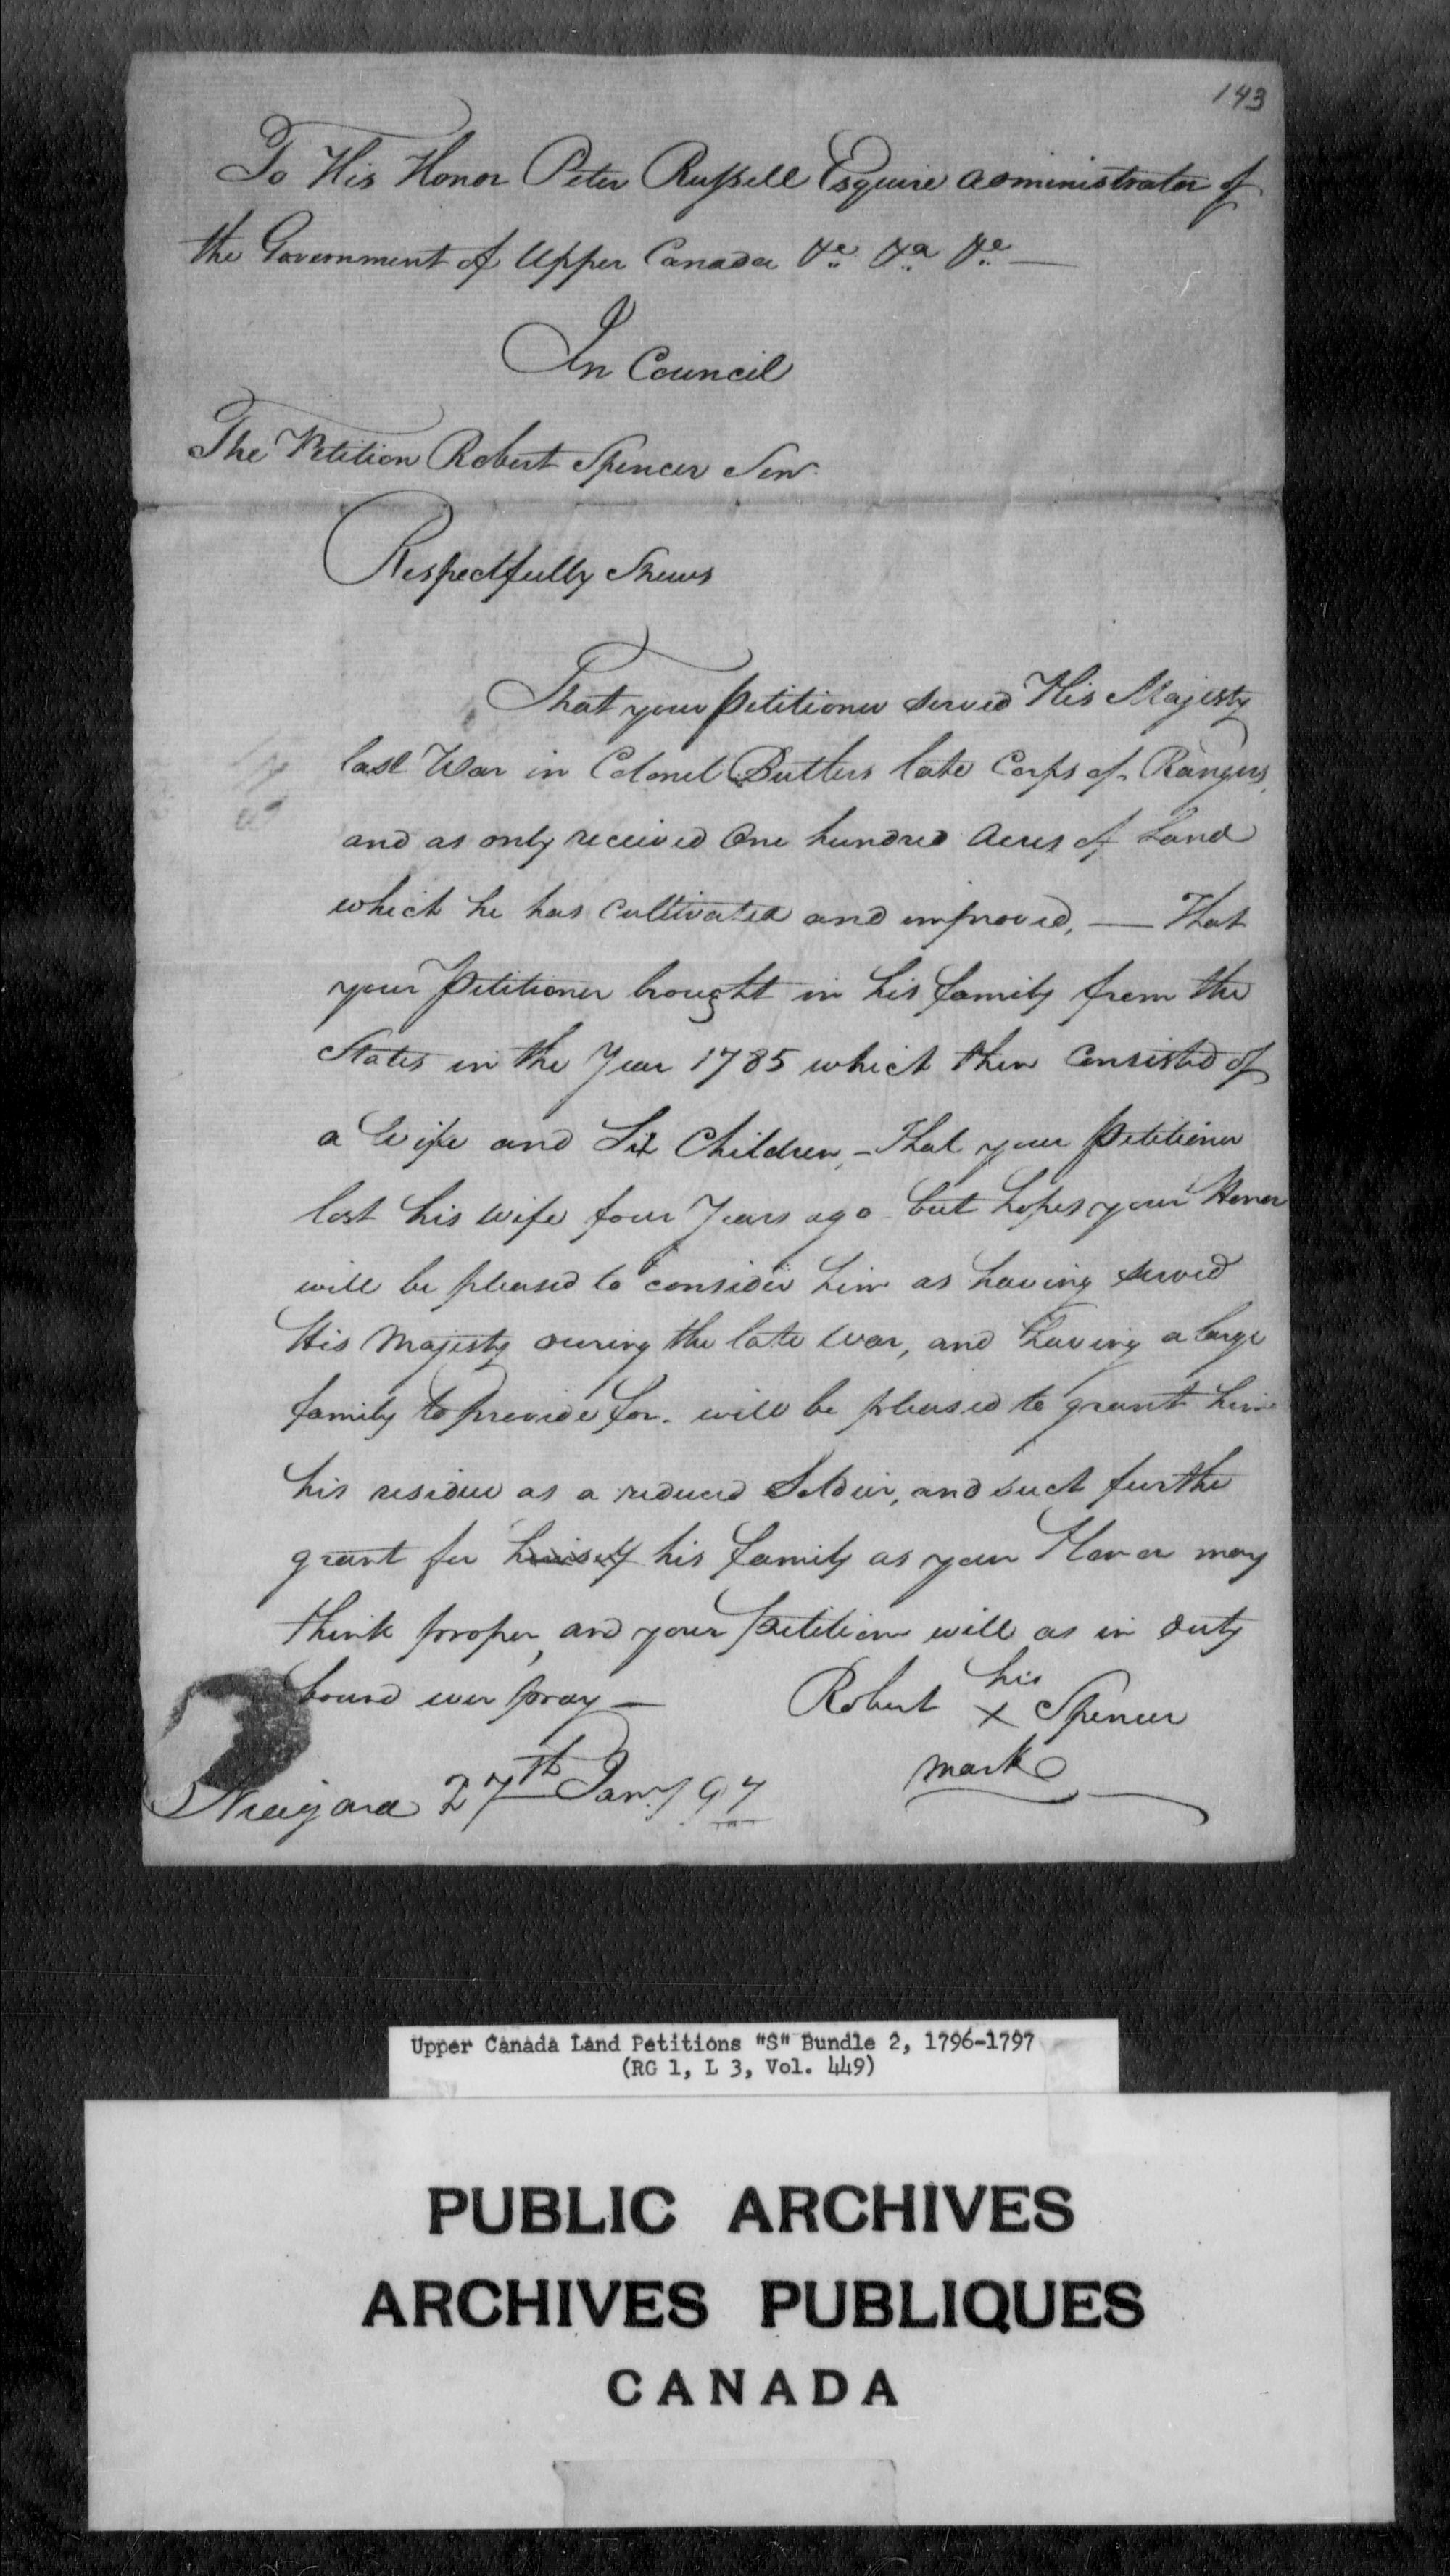 143
To His Honor Peter Russell Esquire administrator of
the Government of Upper Canada &c &c &c —
In Council
The Petition Robert Spencer Senr
Respectfully Shews
That your petitioner served His Majesty
last War in Colonel Butlers late Corps of Rangers,
and as only received One hundred acres of Land
which he has cultivated and improved, — That
your petitioner brought in his family from the
States in the Year 1785 which then Consisted of
a Wife and Six Children, - That your petitioner
lost his wife four Years ago but hopes your Honor
will be pleased to consider him as having served
His Majesty during the late War, and having a large
family to provide for. will be pleased to grant him
his residue as a reduced Soldier, and such further
grant for himself his family as your Honor may
think proper, and your petitioner will as in duty
bound ever pray —
Robert his X Spencer
mark
Niagara 27th Jany 97
Upper Canada Land Petitions "S" Bundle 2, 1796-1797
(RG 1, L 3, Vol. 449)
PUBLIC ARCHIVES
ARCHIVES PUBLIQUES
CANADA